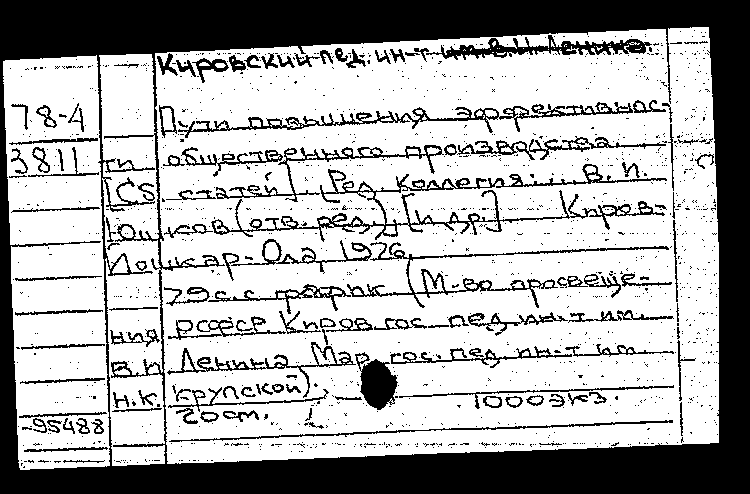 Кировский пед. ин-т им. В.И. Ленина.
78-4 Пути повышения эффективнос-
3811 ти общественного производства.
[Сб статей]. [Ред. коллегия: ... В. П.
Юшков (отв. ред.), [и др.] Киров-
Йошкар-Ола, 1976.
79 с. с график (М-во просвеще-
ния РСФСР. Киров гос. пед. ин-т им.
В.И Ленина Мар. гос. пед. ин-т им.
Н.К. Крупской).
-95488 20 см. 1000 экз.